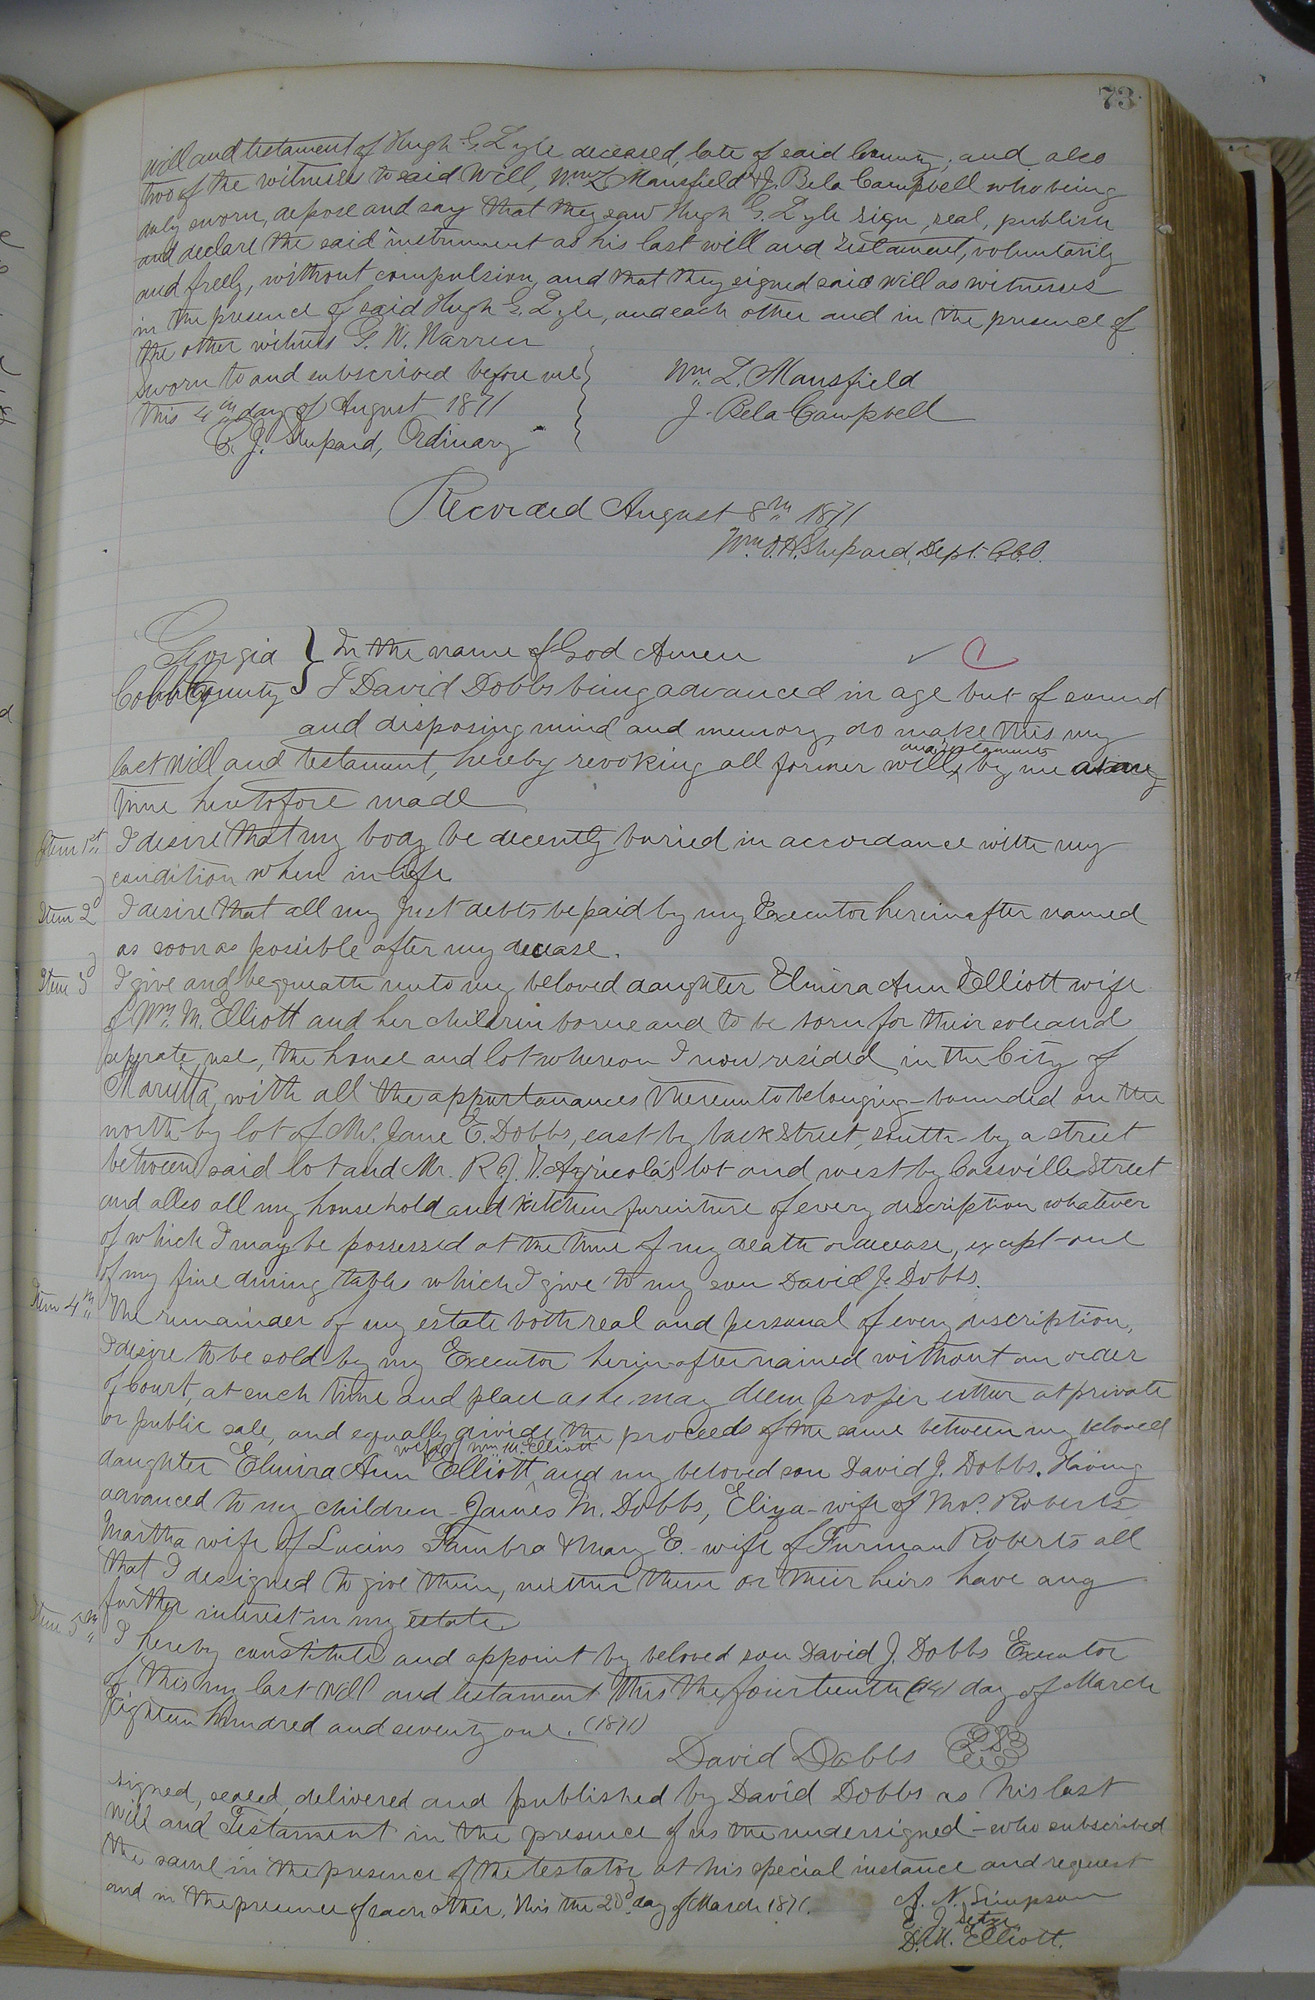 73
will and testament of Hugh G. Lyle deceased, late of said County, and also
two of the witnesses to said Will, Wm L Mansfield & J. Bela Campbell who being
duly sworn, depose and say that they saw Hugh G. Lyle sign, seal, publish
and declare the said instrument as his last will and testament, voluntarily
and freely, without compulsion, and that they signed said will as witnesses
in the presence of said Hugh G. Lyle, and each other and in the presence of
the other witness G. W. Warren
Sworn to and subscribed before me
this 4th day of August 1871
C. J. Shepard, Ordinary
Wm. L. Mansfield
J. Bela Campbell
Recorded August 8th 1871
Wm. Shepard, Dept. C.C.O.
Georgia } In the name of God Amen
Cobb County } I David Dobbs being advanced in age but of sound
and disposing mind and memory, do make this my
and testaments
last Will and testament, hereby revoking all former wills, by me at any
time heretofore made
Item 1st I desire that my body be decently buried in accordance with my
condition when in life
Item 2d I desire that all my just debts be paid by my Executor hereinafter named
as soon as possible after my decease.
Item 3d I give and bequeath unto my beloved daughter Elmira Ann Elliott wife
of Wm. M. Elliott and her children borne and to be born for their sole and
seperate use, the house and lot whereon I now resided, in the City of
Marietta, with all the appurtanances thereunto belonging - bounded on the
north by lot of Mrs. Jane E. Dobbs, east by back Street, south - by a street
between said lot and Mr. R. J. T. Agricola's lot and west by Cassville Street
and alleo all my household and kitchen furiniture of every discription whatever
of which I may be possessed at the time of my death or decease, except one
of my fine dining tables which I give to my son David J. Dobbs.
Item 4th The remainder of my estate both real and personal of every discription,
I desire to be sold by my Executor herin after named without an order
of Court, at such time and place as he may deem proper either at private
or public sale, and equally divide the proceeds of the same between my beloved
wife of Wm. M. Elliott
daughter Elmira Ann Elliott and my beloved son David J. Dobbs. Having
advanced to my children - James M. Dobbs, Eliza - wife of Mos. Roberts
Martha wife of Lucius Tumbro & Mary E. - wife of Furman Roberts all
that I designed to give them, neither them or their heirs have any
further interest in my estate.
Item 5th I hereby constitute and appoint by beloved son David J. Dobbs Executor
of this my last Will and testament This the fourteenth (14) day of March
Eighteen hundred and seventy one. (1871)
David Dobbs LS
signed, sealed, delivered and published by David Dobbs as his last
Will and Testament in the presence of us the undersigned - who subscribed
the same in the presence of the testator, at his special instance and request
and in the presence of each other. This the 20d day of March 1871.
A. N. Simpson
E. J. Setze
D. M. Elliott.